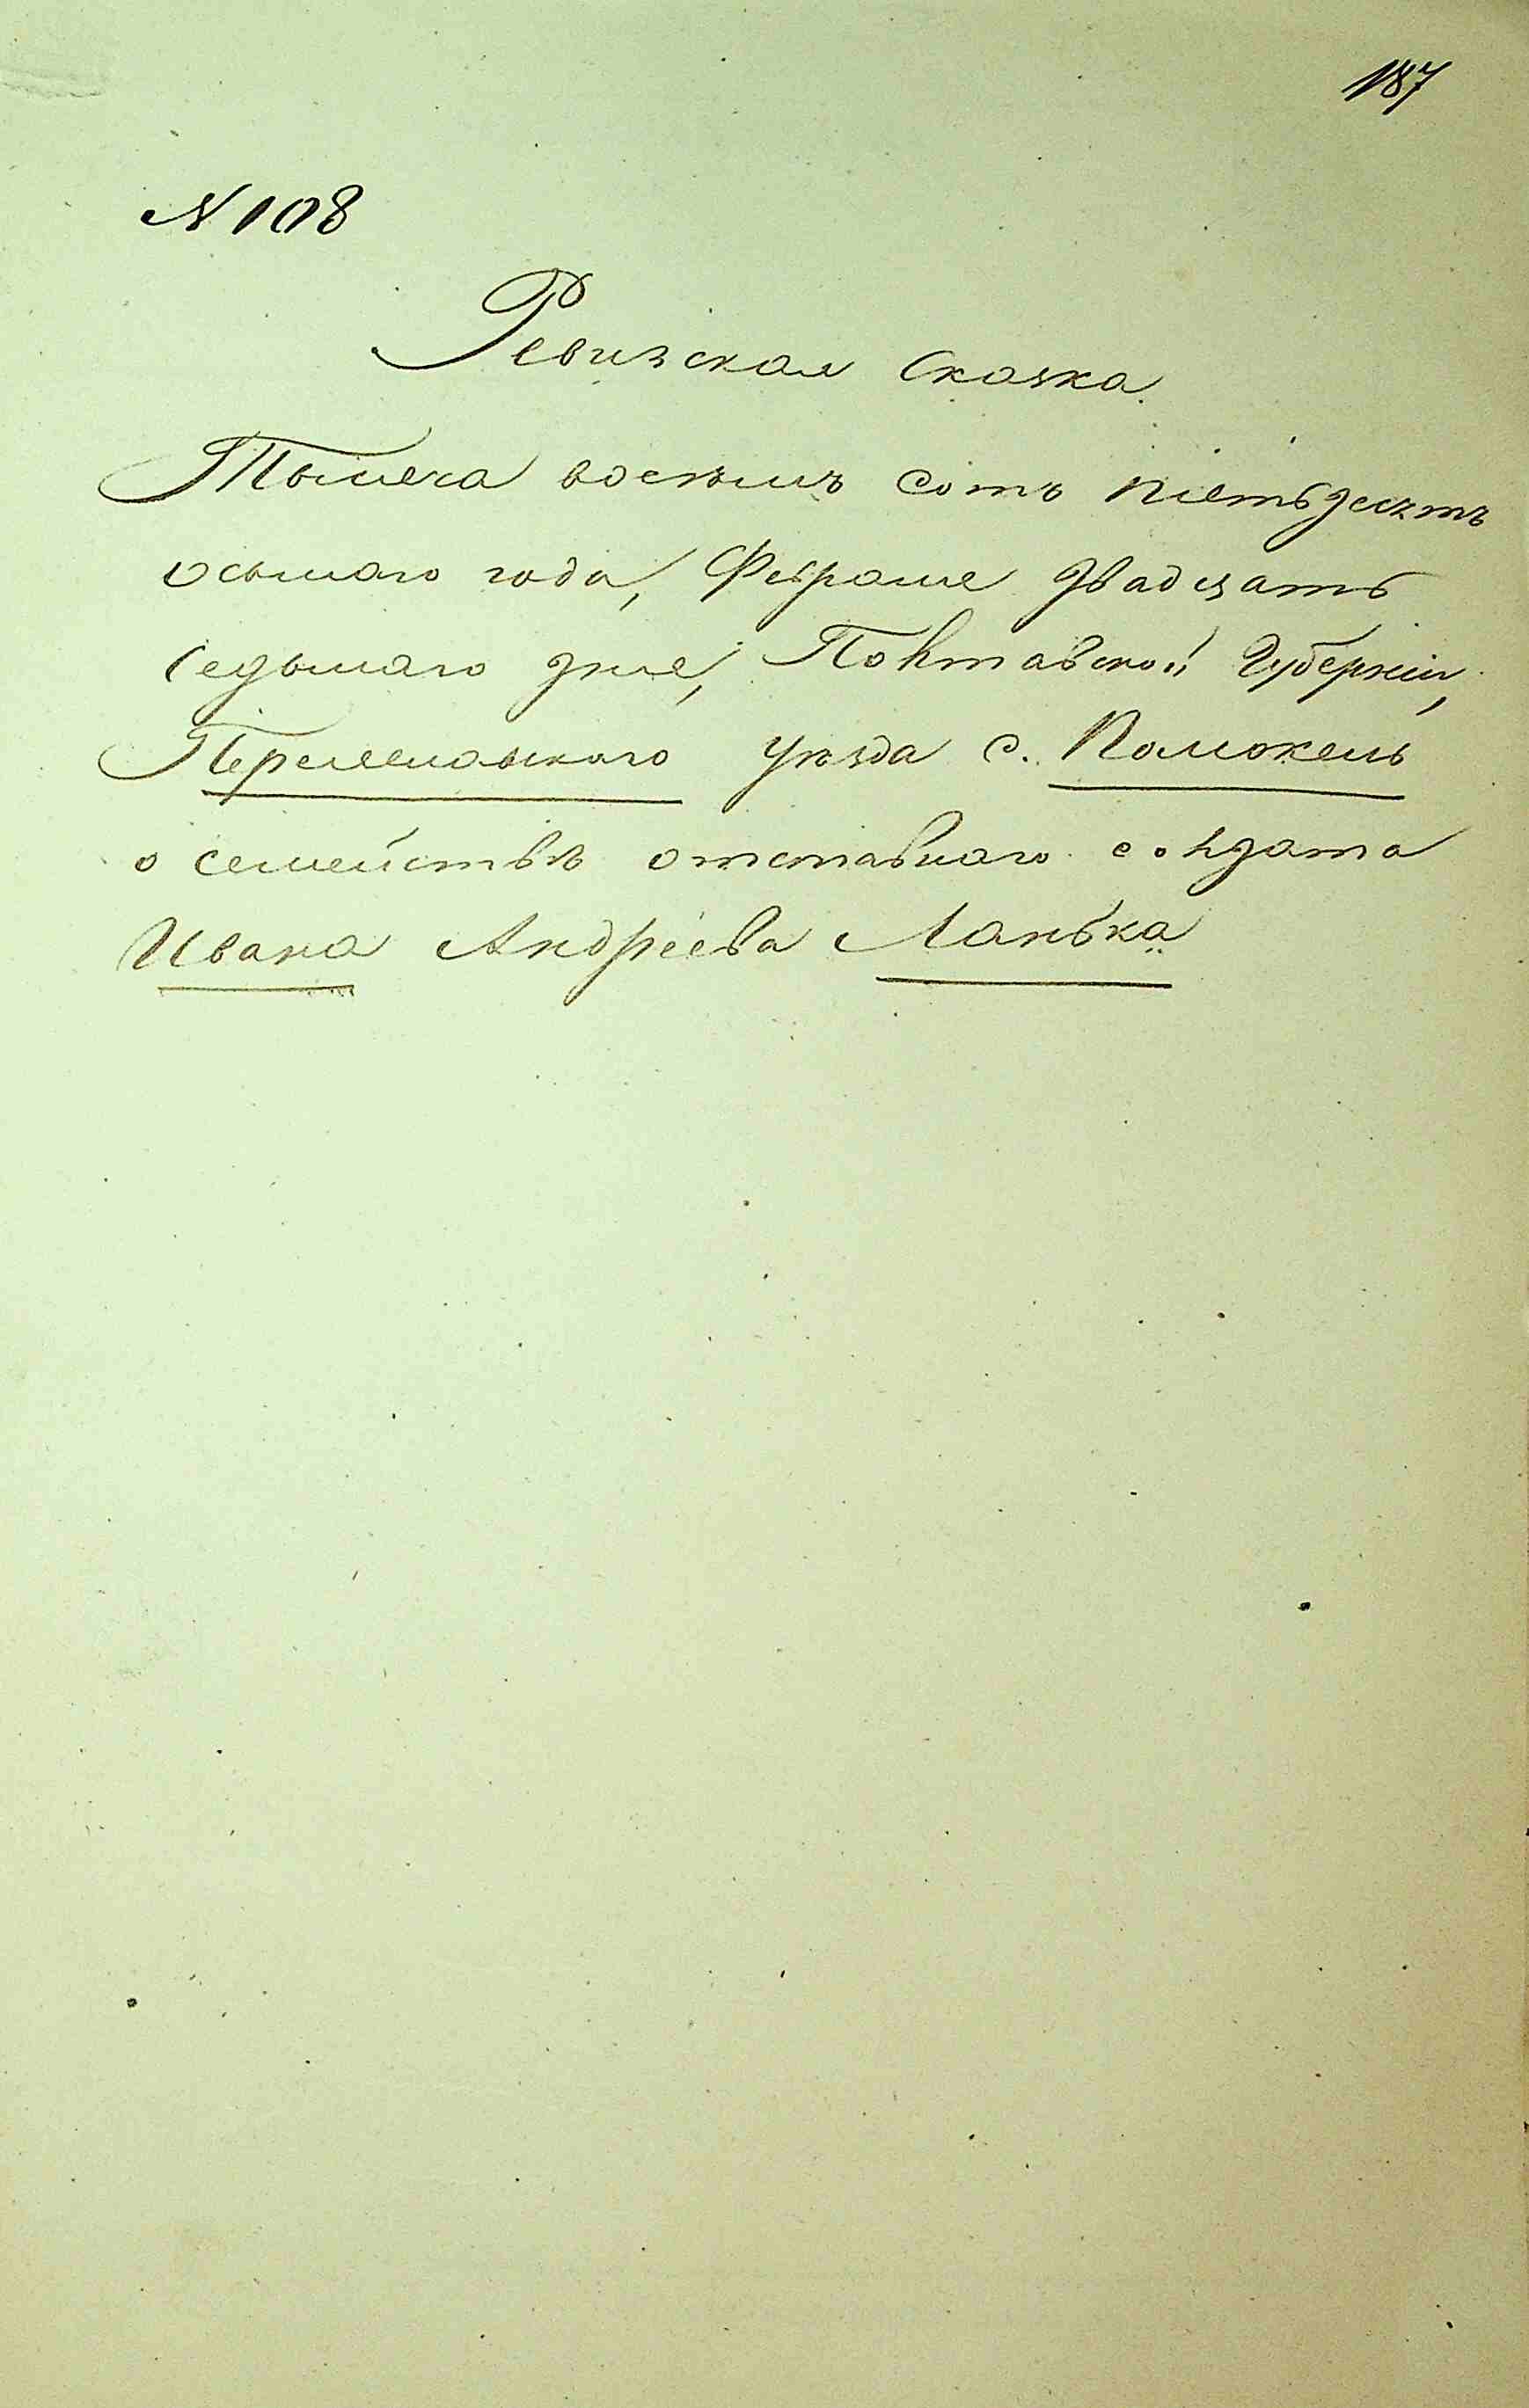 187
N 108
Ревизская Сказка.
Тысяча восемь сотъ пятьдесятъ
осьмаго года, Февраля двадцать
седьмаго дня, Полтавской Губерніи,
Переяславскаго уѣзда с. Помокель
о семействѣ отставнаго солдата
Ивана Андреева Ланька